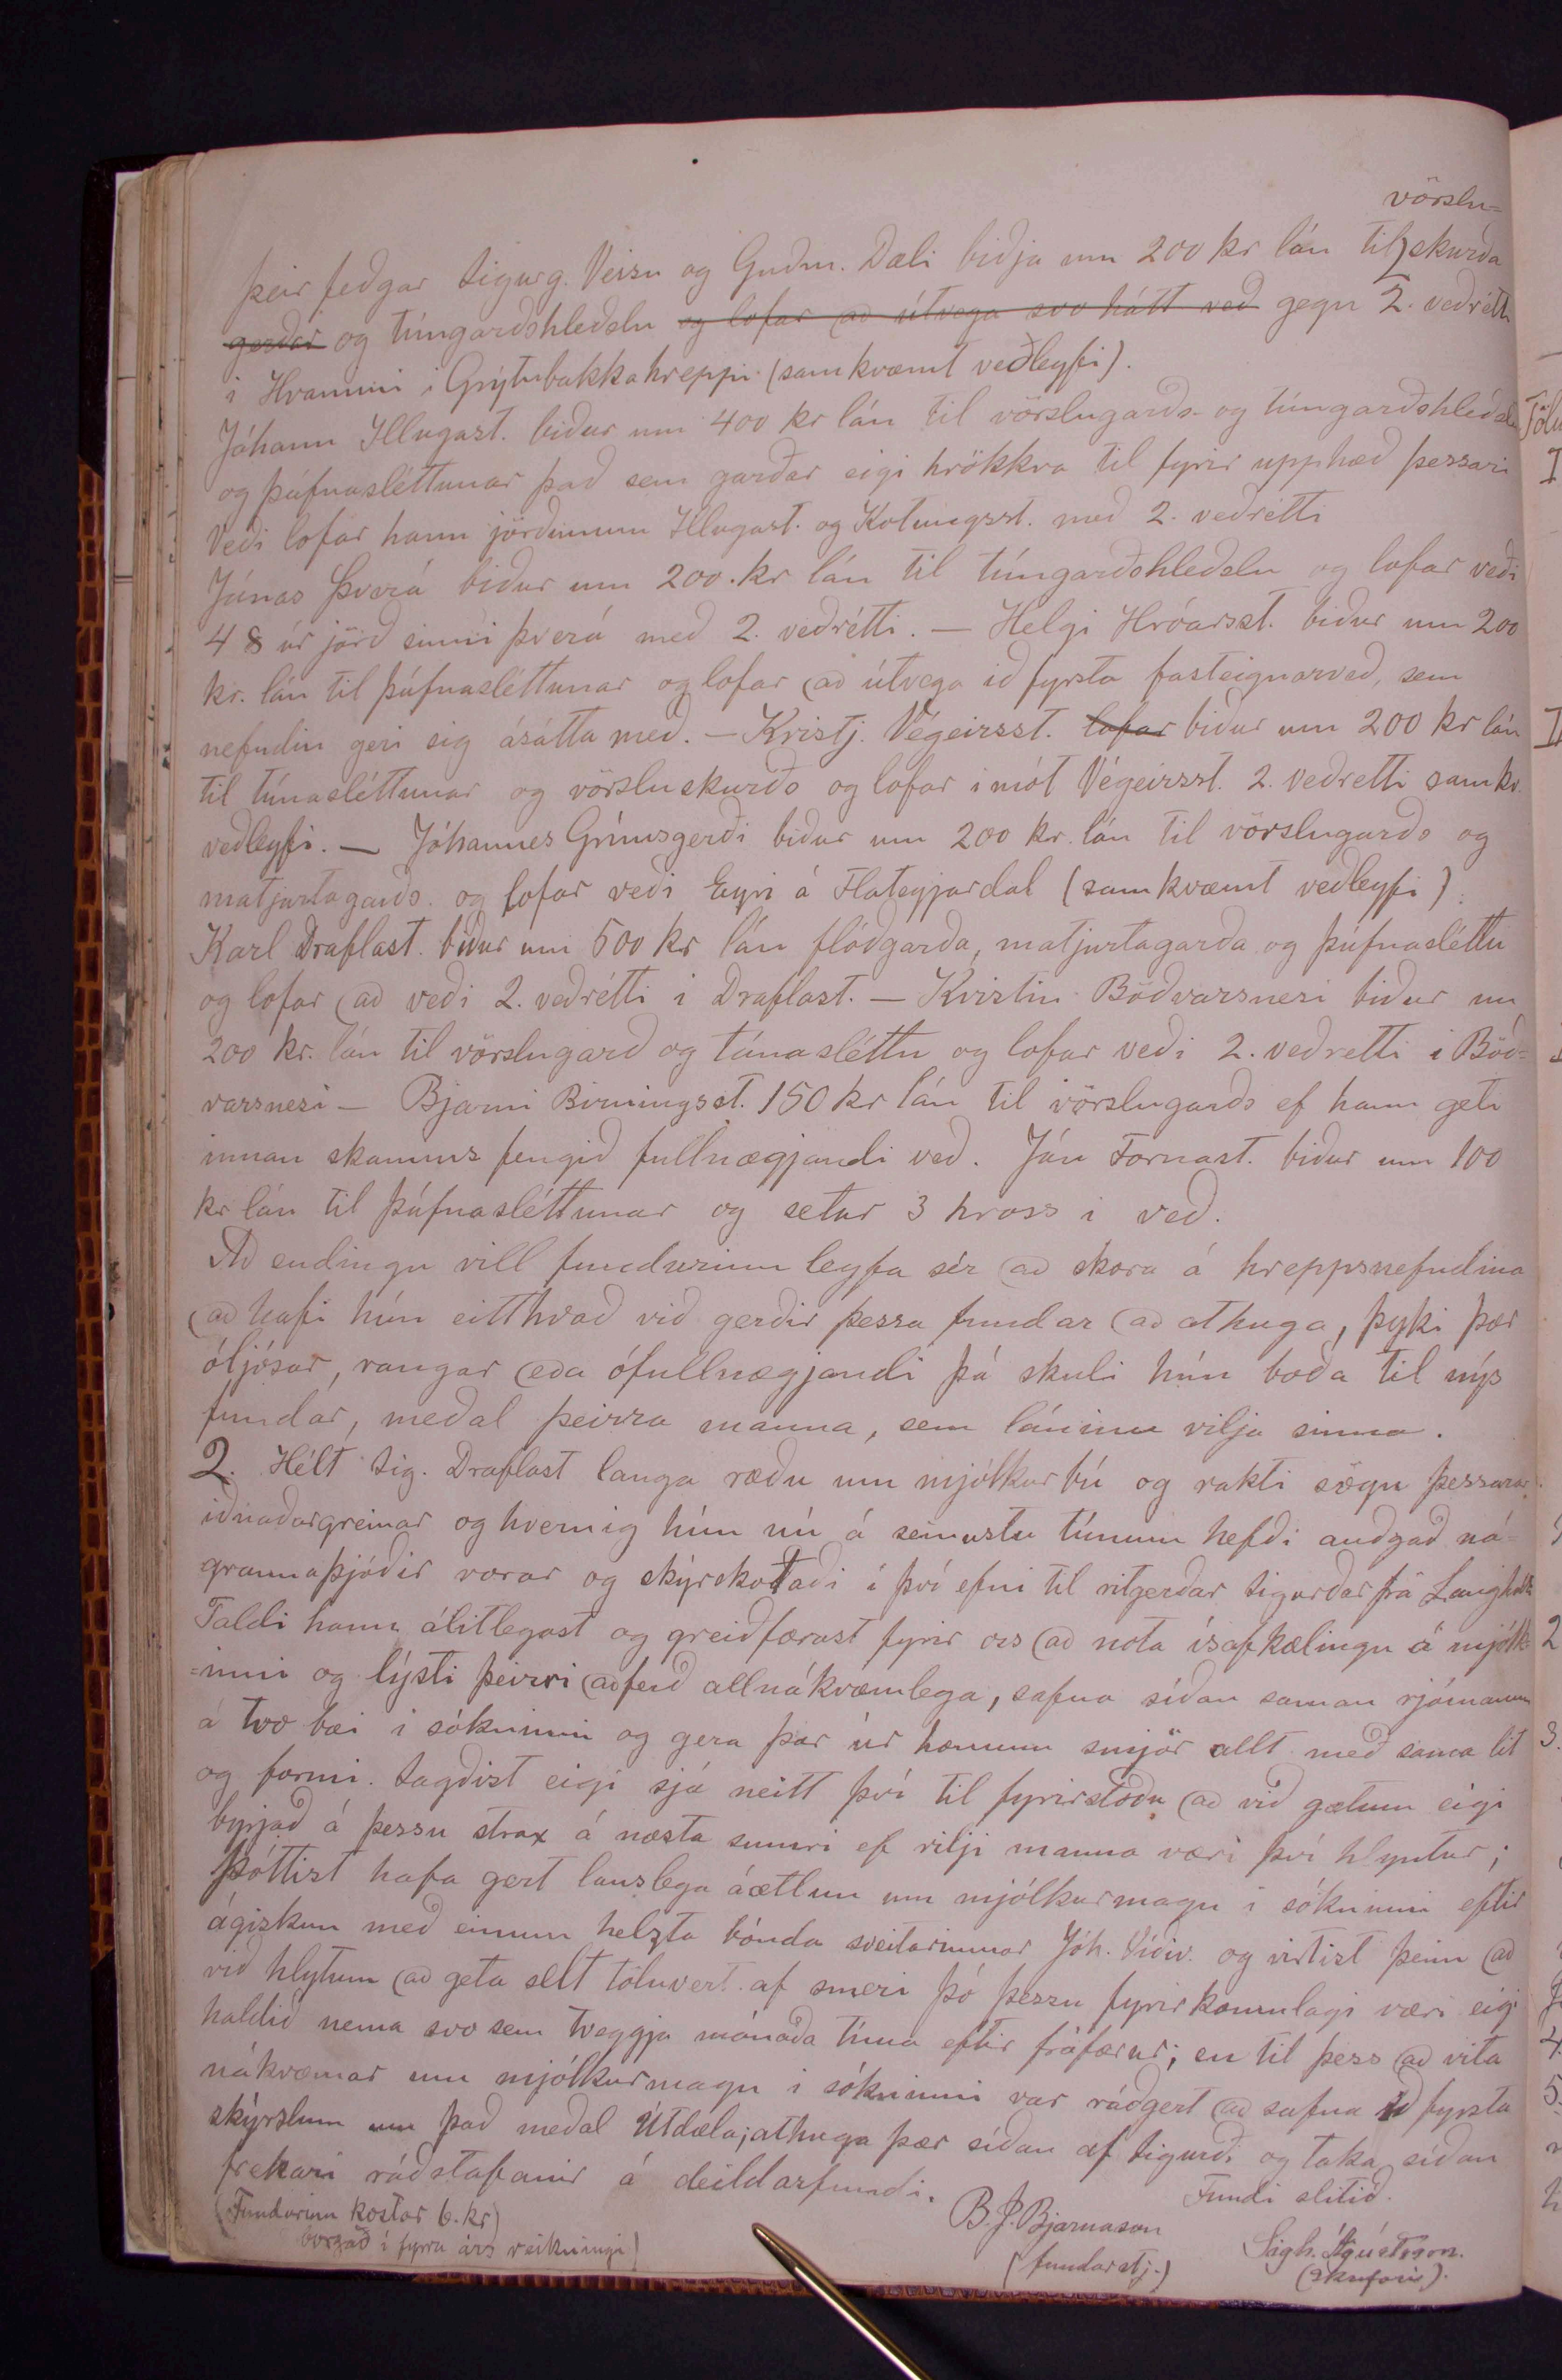 vörslu=
þeir feðgar Sigurg. Veisu og Guðm. Dæli biðja um 200 kr lán til skurða
gerðar og túngarðshleðslu og lofar að útvega svo hátt veð gegn 2. veðrétti
í Hvammi í Grýtubakkahreppi (samkvæmt veðleyfi).
Jóhann Illugast. biður um 400 kr lán til vörslugarðs- og túngarðshleðslu
og þúfnasléttunar það sem garðar eigi hrökkva til fyrir upphæð þessari
Veði lofar hann jörðunum Illugast. og Kotungsst. með 2. veðrétti
Jónas Þverá biður um 200. kr lán til túngarðshleðslu og lofar veði
4 8 úr jörð sinni þverá með 2. veðrétti. — Helgi Hróarsst. biður um 200
kr. lán til þúfnasléttunar og lofar að útvega ið fyrsta fasteignarveð, sem
nefndin geri sig ásátta með. — Kristj. Végeirsst. lofar biður um 200 kr lán
til túnasléttunar og vörsluskurðs og lofar í mót Végeirsst. 2. veðretti samkv.
veðleyfi. — Jóhannes Grímsgerði biður um 200 kr. lán til vörslugarðs og
matjurtagarðs. og lofar veði Eyri á Flateyjardal (samkvæmt veðleyfi).
Karl Draflast. biður um 500 kr lán flóðgarða, matjurtagarða og þúfnasléttu
og lofar að veði 2. veðrétti í Draflast. — Kristín Böðvarsnesi biður um
200 kr. lán til vörslugarð og túnasléttu og lofar veði 2. veðretti í Böð=
varsnesi — Bjarni Birningsst. 150 kr lán til vörslugarðs ef hann geti
innan skamms fengið fullnægjandi veð. Jón Fornast. biður um 100
kr lán til þúfnasléttunar og setur 3 hross í veð.
Að endingu vill fundurinn leyfa sér að skora á hreppsnefndina
að hafi hún eitthvað við gerðir þessa fundar að athuga, þyki þær
óljósar, rangar eða ófullnægjandi þá skuli hún boða til nýs
fundar, meðal þeirra manna, sem láninu vilja sinna.
2. Hélt Sig. Draflast langa ræðu um mjólkurbú og rakti sögu þessarar
iðnaðargreinar og hvernig hún nú á seinustu tímum hefði auðgað ná=
grannaþjóðir vorar og skýrskotaði í því efni til ritgerðar Sigurðar frá Langholti
Taldi hann álitlegast og greiðfærast fyrir oss að nota ísafkælingu á mjólk=
=inni og lýsti þeirri aðferð allnákvæmlega, safna síðan saman rjómanum
á tvo bæi í sókninni og gera þar úr honum smjör allt með sama lit
og formi. Sagðist eigi sjá neitt því til fyrirstöðu að við gætum eigi
byrjað á þessu strax á næsta sumri ef vilji manna væri því hlyntur;
Þóttist hafa gert lauslega áætlun um mjólkurmagn í sókninni eftir
ágiskun með einum helzta bónda sveitarinnar Jóh. Víðiv. og virtist þeim að
við hlytum að geta selt töluvert af smeri þó þessu fyrirkomulagi væri eigi
haldið nema svo sem tveggja mánaða tíma eftir fráfærur; en til þess að vita
nákvæmar um mjólkurmagn í sókninni var ráðgert að safna ið fyrsta
skýrslum um það meðal Útdæla; athuga þær síðan af Sigurði og taka síðan
frekari ráðstafanir á deildarfundi.
Fundi slitið.
(Fundurinn kostar 6. kr)
borgað í fyrra árs reikningi)
B. J. Bjarnason
(fundarstj.)
Sigh. Ágústsson.
(skrifari).